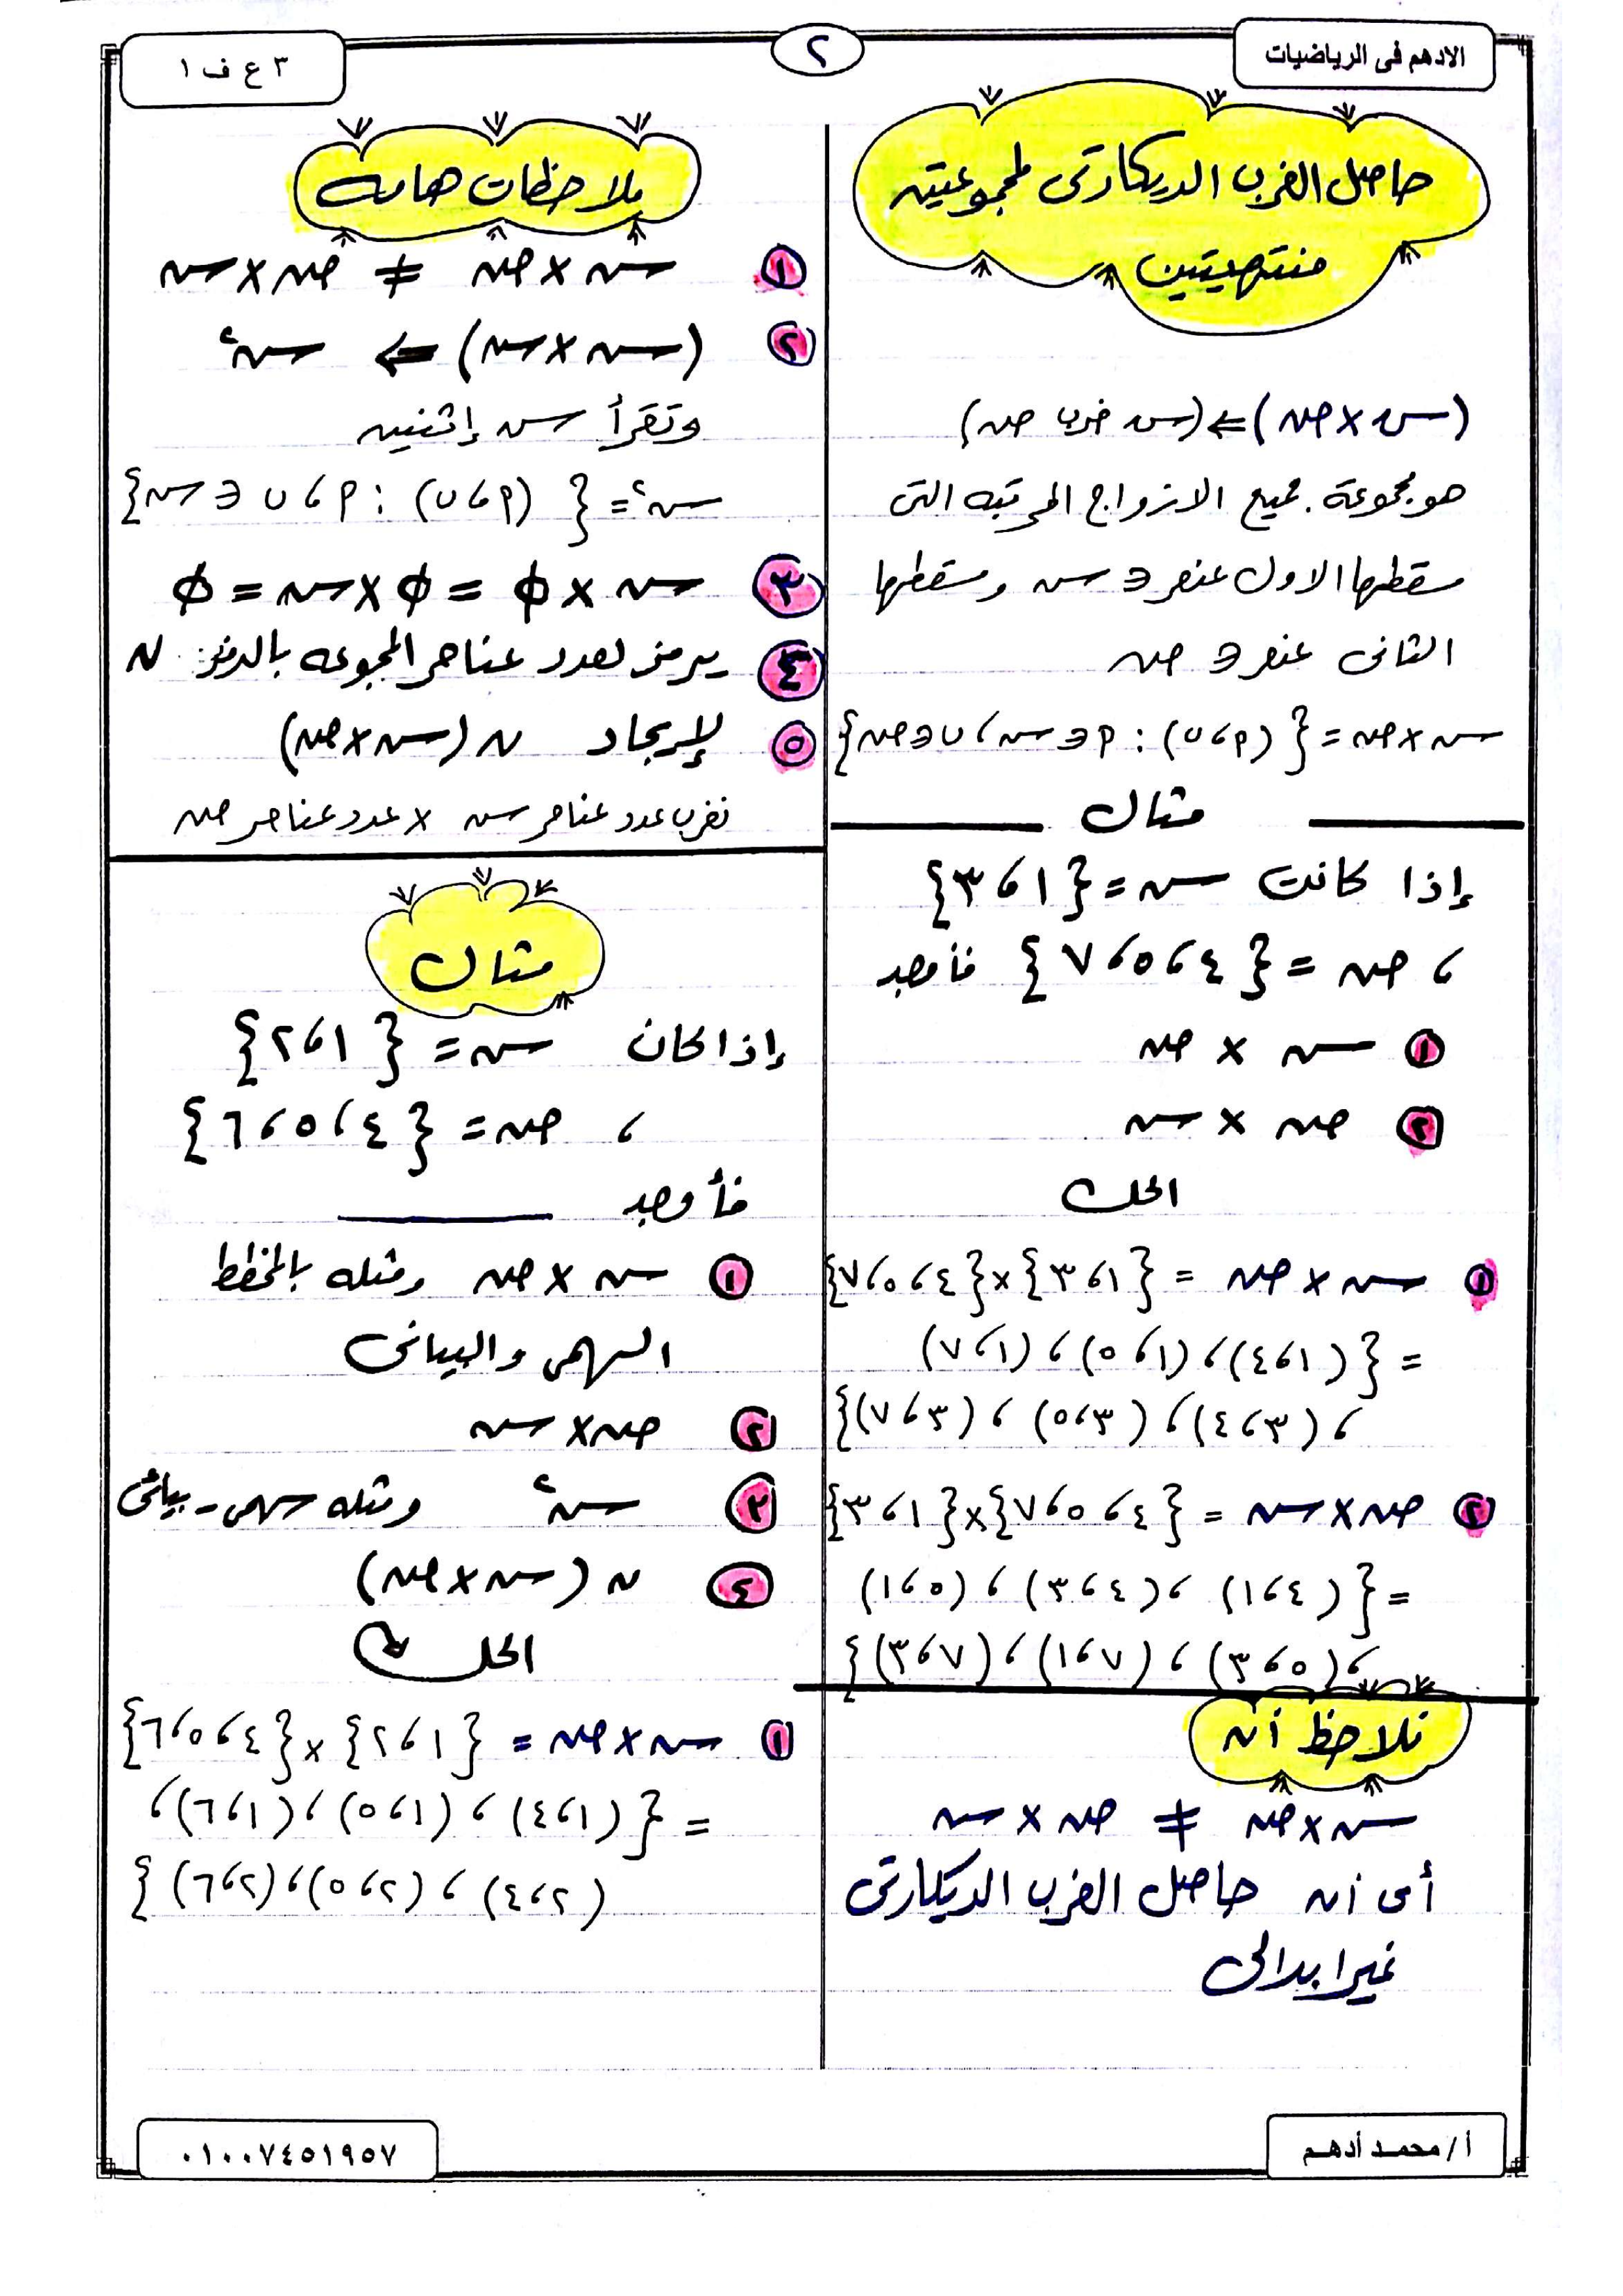 الادهم فى الرياضيات
٢
٣ ع ف ١
حاصل الضرب الديكارتى لمجموعتين
منتهيتين
(س × ص) ⇐ (س ضرب ص)
هو مجموعة جميع الازواج المرتبه التى
مسقطها الاول عنصر ∈ س ومسقطها
الثانى عنصر ∈ ص
س × ص = { (م ، ں) : م ∈ س ، ں ∈ ص }
مثال
إذا كانت س = { ١ ، ٣ }
، ص = { ٤ ، ٥ ، ٧ } فأوجد
١ س × ص
٢ ص × س
الحل
١ س × ص = { ١ ، ٣ } × { ٤ ، ٥ ، ٧ }
= { (١ ، ٤) ، (١ ، ٥) ، (١ ، ٧)
، (٣ ، ٤) ، (٣ ، ٥) ، (٣ ، ٧) }
٢ ص × س = { ٤ ، ٥ ، ٧ } × { ١ ، ٣ }
= { (٤ ، ١) ، (٤ ، ٣) ، (٥ ، ١)
، (٥ ، ٣) ، (٧ ، ١) ، (٧ ، ٣) }
نلاحظ أن
س × ص ≠ ص × س
أى أن حاصل الضرب الديكارتى
غير ابدالى
ملاحظات هامه
١ س × ص ≠ ص × س
٢ (س × س) ⇐ س٢
وتقرأ س إثنين
س٢ = { (م ، ں) : م ، ں ∈ س }
٣ س × φ = φ × س = φ
٤ يرمز لعدد عناصر المجموعه بالرمز ن
٥ لإيجاد ن (س × ص)
نضرب عدد عناصر س × عدد عناصر ص
مثال
إذا كان س = { ١ ، ٢ }
، ص = { ٤ ، ٥ ، ٦ }
فأوجد
١ س × ص ومثله بالمخطط
السهمى والبيانى
٢ ص × س
٣ س٢ ومثله سهمى - بيانى
٤ ن (س × ص)
الحل
١ س × ص = { ١ ، ٢ } × { ٤ ، ٥ ، ٦ }
= { (١ ، ٤) ، (١ ، ٥) ، (١ ، ٦) ،
(٢ ، ٤) ، (٢ ، ٥) ، (٢ ، ٦) }
أ / محمد أدهم
٠١٠٠٧٤٥١٩٥٧